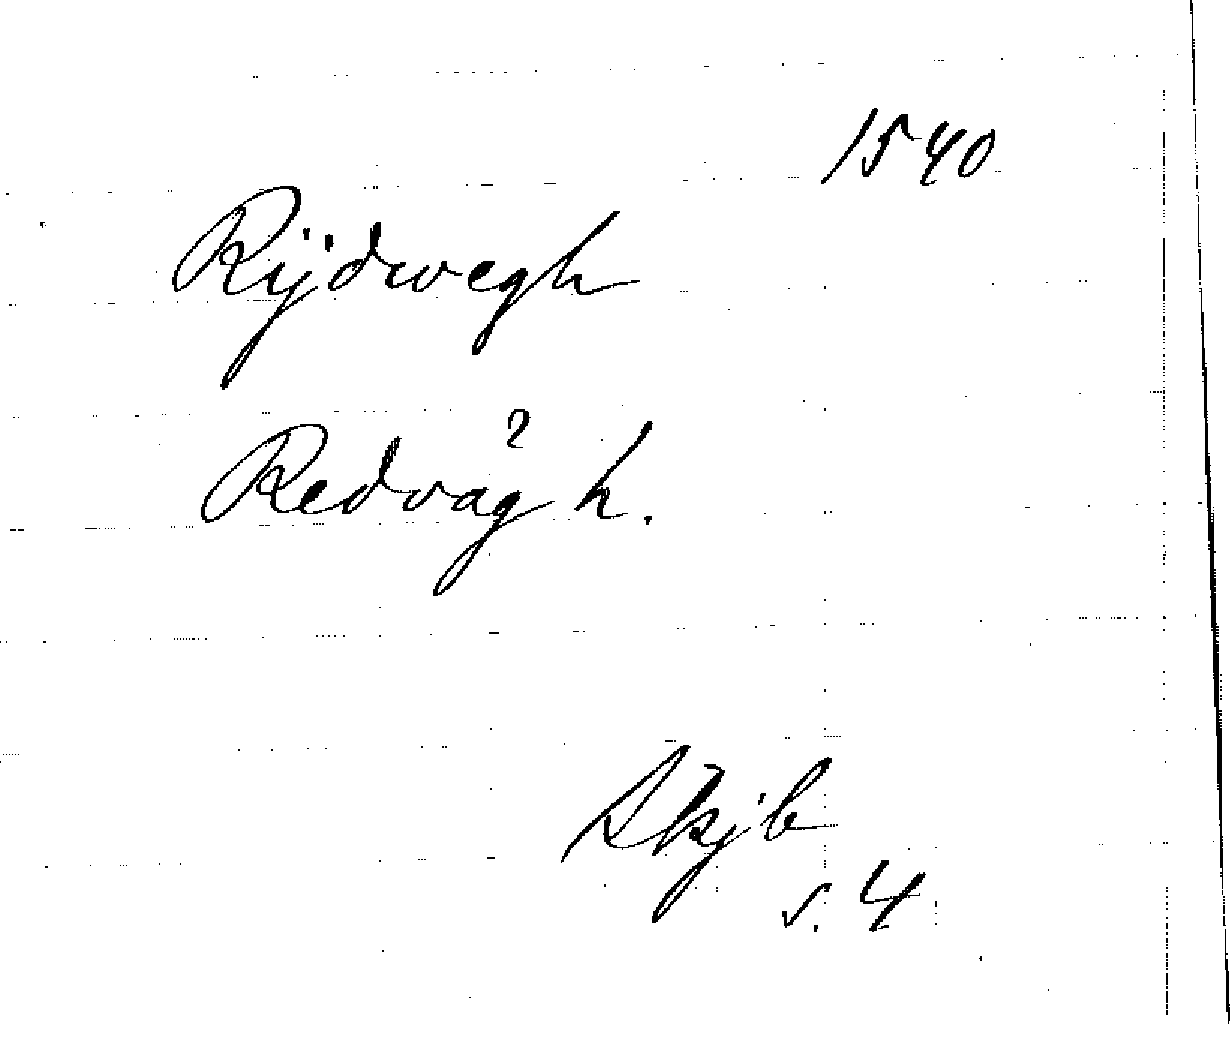 1540
Rÿdwegh
?
Redvåg h.
Skjb
s. 4